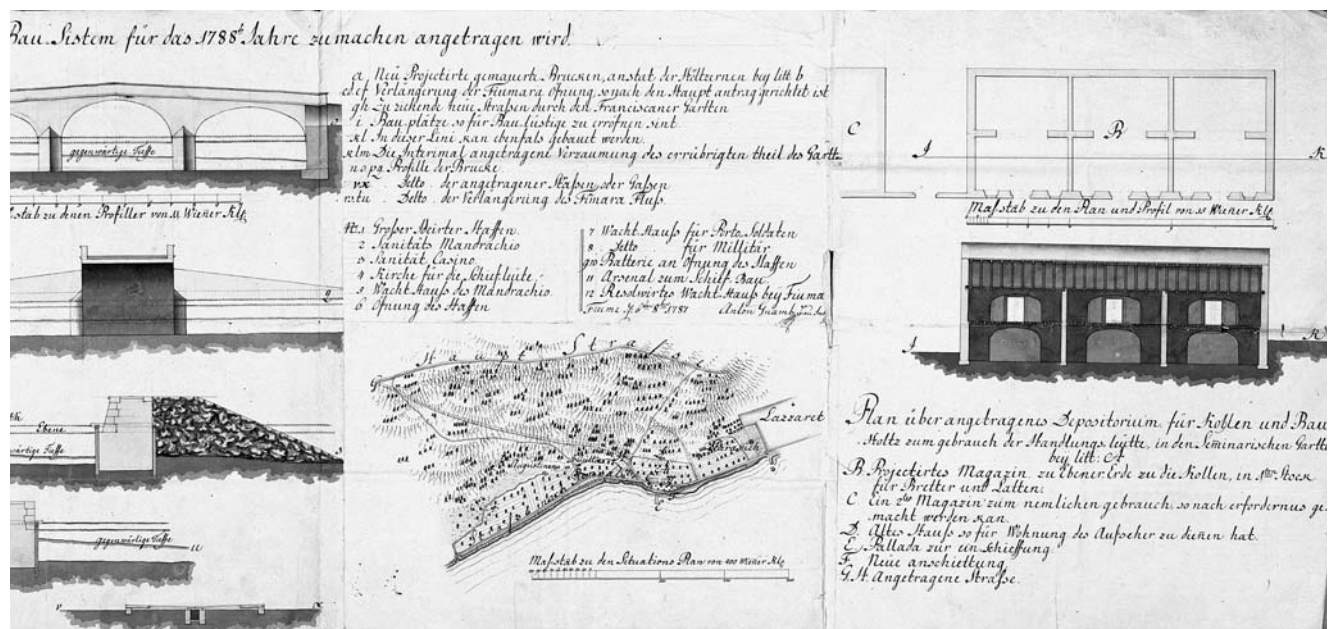 Bau-Sistem für das 1788t Jahre zu machen angetragen wird.
a Neü Projectirte gemauerte Brucken, anstat der Höltzernen bey litt b
cdef Verlängerung der Fiumara Öfnung, so nach den Haupt antrag gerichtet ist
gh Zu ziehende neüe Straßen durch den Franciscaner Gartten
i Bau plätze so für Bau-lüstige zu eröfnen sint
kl In dieser Lini kan ebenfals gebauet werden.
klm Die Interimal angetragene Verzaumung des errübrigten theil des Gartt
nopq Profille der Brucke
vx Detto der angetragener Straßen oder Gaßen
rstu Detto der Verlängerung des Fiumara Fluß.
1 Großer Haffen.
2 Sanitäts Mandrachio
3 Sanität Casino.
4 Kirche für die Schifleüte
5 Wacht Hauß des Mandrachio
6 Öfnung des Haffen
7 Wacht Hauß für Porto Soldaten
8 Detto für Millitär
9 10 Batterie an Öfnung des Haffen
11 Arsenal zum Schif-Bau
12 Resolvirtes Wacht-Hauß bey Fiuma
Fiume 1787 Anton Gnamb
gegenwärtige Tieffe
stab zu denen Profiller von 11 Wiener Klf.
Q
Ebene
wärtige Tieffe
gegenwärtige Tieffe
u
v x
Haupt Stras
G
Lazaret
Augustiner
Maßstab zu den Situations Plan von 400 Wiener Klf.
C
B
J K
Maßstab zu den Plan und Profil von 10 Wiener Klf.
J K
Plan über angetragenes Depositorium für Kohlen und Bau
Holtz zum gebrauch der Handlungs leütte, in den Seminarischen Gartte
bey litt: A
B. Projectirtes Magazin zu Ebener Erde zu die Kollen, in 1ten Stock
für Bretter und Latten.
C Ein 2tes Magazin zum nemlichen gebrauch, so nach erfordernus ge
macht werden kan.
D. Altes Hauß so für Wohnung des Aufseher zu dienen hat.
E Pallada zur ein Schieffung.
F. Neüe anschiettung
G.H. Angetragene Straße.